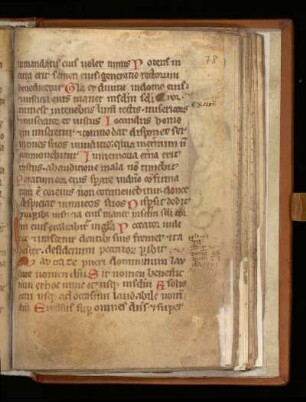 78
in mandatis eius volet nimis Potens in
terra erit semen eius generatio rectorum
benedicetur Gloria et divitie in domo eius
iusticia eius manet in sclm scli Exor
tum est in tenebris lumen rectis misericors
miserator et iustus Iocundus homo
qui miseretur et commodat disponet ser
mones suos in iudicio quia in eternum non
commovebitur In memoria eterna erit
iustus ab auditione mala non timebit
Paratum cor eius sperare in dno confirma
tum est cor eius non commovebitur donec
despiciat inimicos suos Dispersit dedit
pauperibus iusticia eius manet in sclm scli cor
nu eius exaltabitur in gla Peccator vide
bit et irascetur dentibus suis fremet et ta
bescet desiderium peccatorum peribit
Laudate pueri dominum lau
date nomen dni Sit nomen dni benedic
tum ex hoc nunc et usq in sclm A solis
ortu usq ad occasum laudabile nomen
dni Excelsus sup omnes gentes dns et super